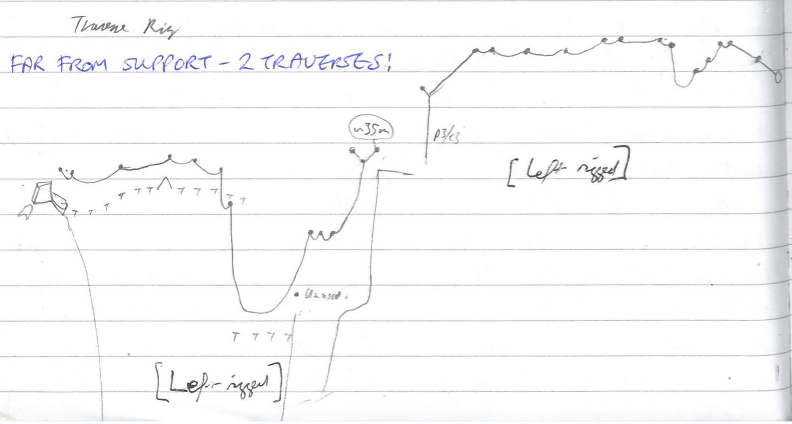 Traverse Rig
FAR FROM SUPPORT - 2 TRAVERSES!
n35m
P3/c3
[Left-rigged]
Unused.
[Left-rigged]